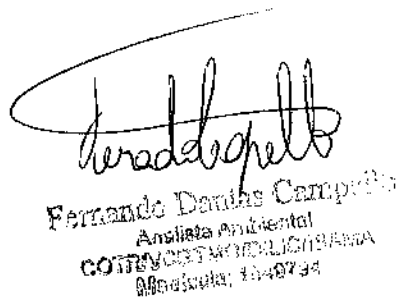 Fernando Dantas Campello
Analista Ambiental
COTRA/CGTMO/DILIC/IBAMA
Matrícula: 1549794